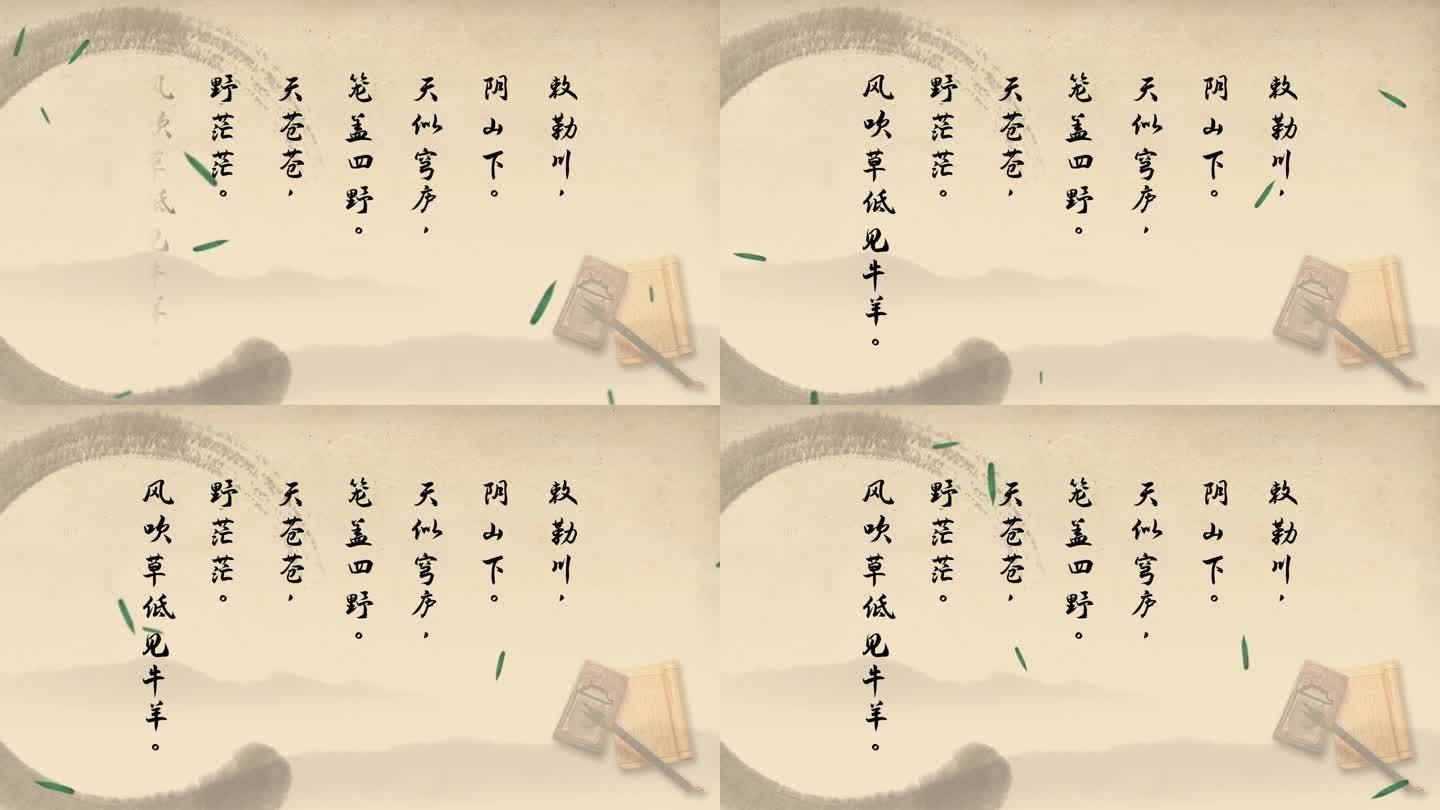 敕勒川，
阴山下。
天似穹庐，
笼盖四野。
天苍苍，
野茫茫。
风吹草低见牛羊。
敕勒川，
阴山下。
天似穹庐，
笼盖四野。
天苍苍，
野茫茫。
风吹草低见牛羊。
敕勒川，
阴山下。
天似穹庐，
笼盖四野。
天苍苍，
野茫茫。
风吹草低见牛羊。
敕勒川，
阴山下。
天似穹庐，
笼盖四野。
天苍苍，
野茫茫。
风吹草低见牛羊。